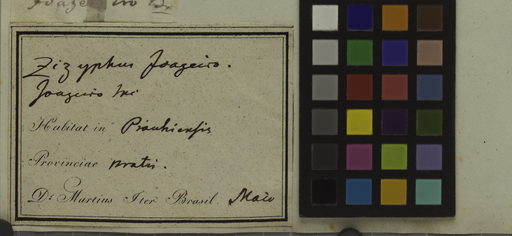 Zizyphus Joazeiro.
Joazeiro
Habitat in Piauhiensis
Provinciae pratis.
Dr Martius Iter Brasil. Maio